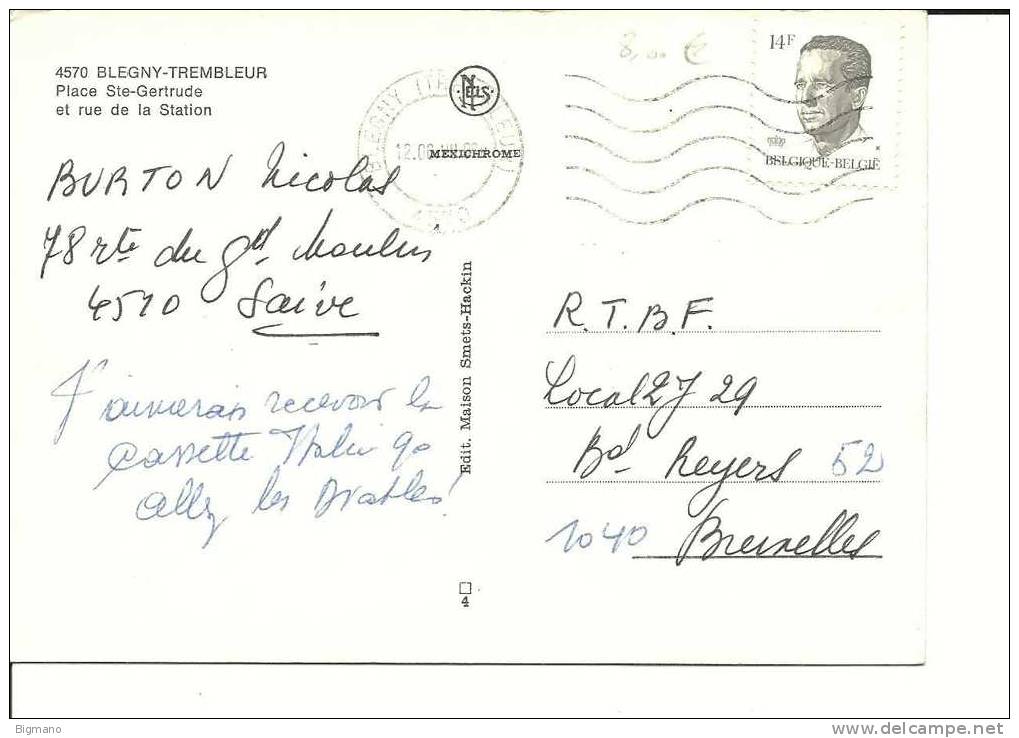 4570 BLEGNY-TREMBLEUR
Place Ste-Gertrude
et rue de la Station
NELS
MEXICHROME
BLEGNY
4570
8,00 €
14F
BELGIQUE-BELGIË
BURTON Nicolas
78 rte du gd Moulin
4510 Saive
J'aimerais recevoir la
cassette Italie 90
allez les Diables!
Edit. Maison Smets-Hackin
4
R.T.B.F.
Local 2J 29
Bd Reyers 52
1040 Bruxelles
Bigmano
www.delcampe.net